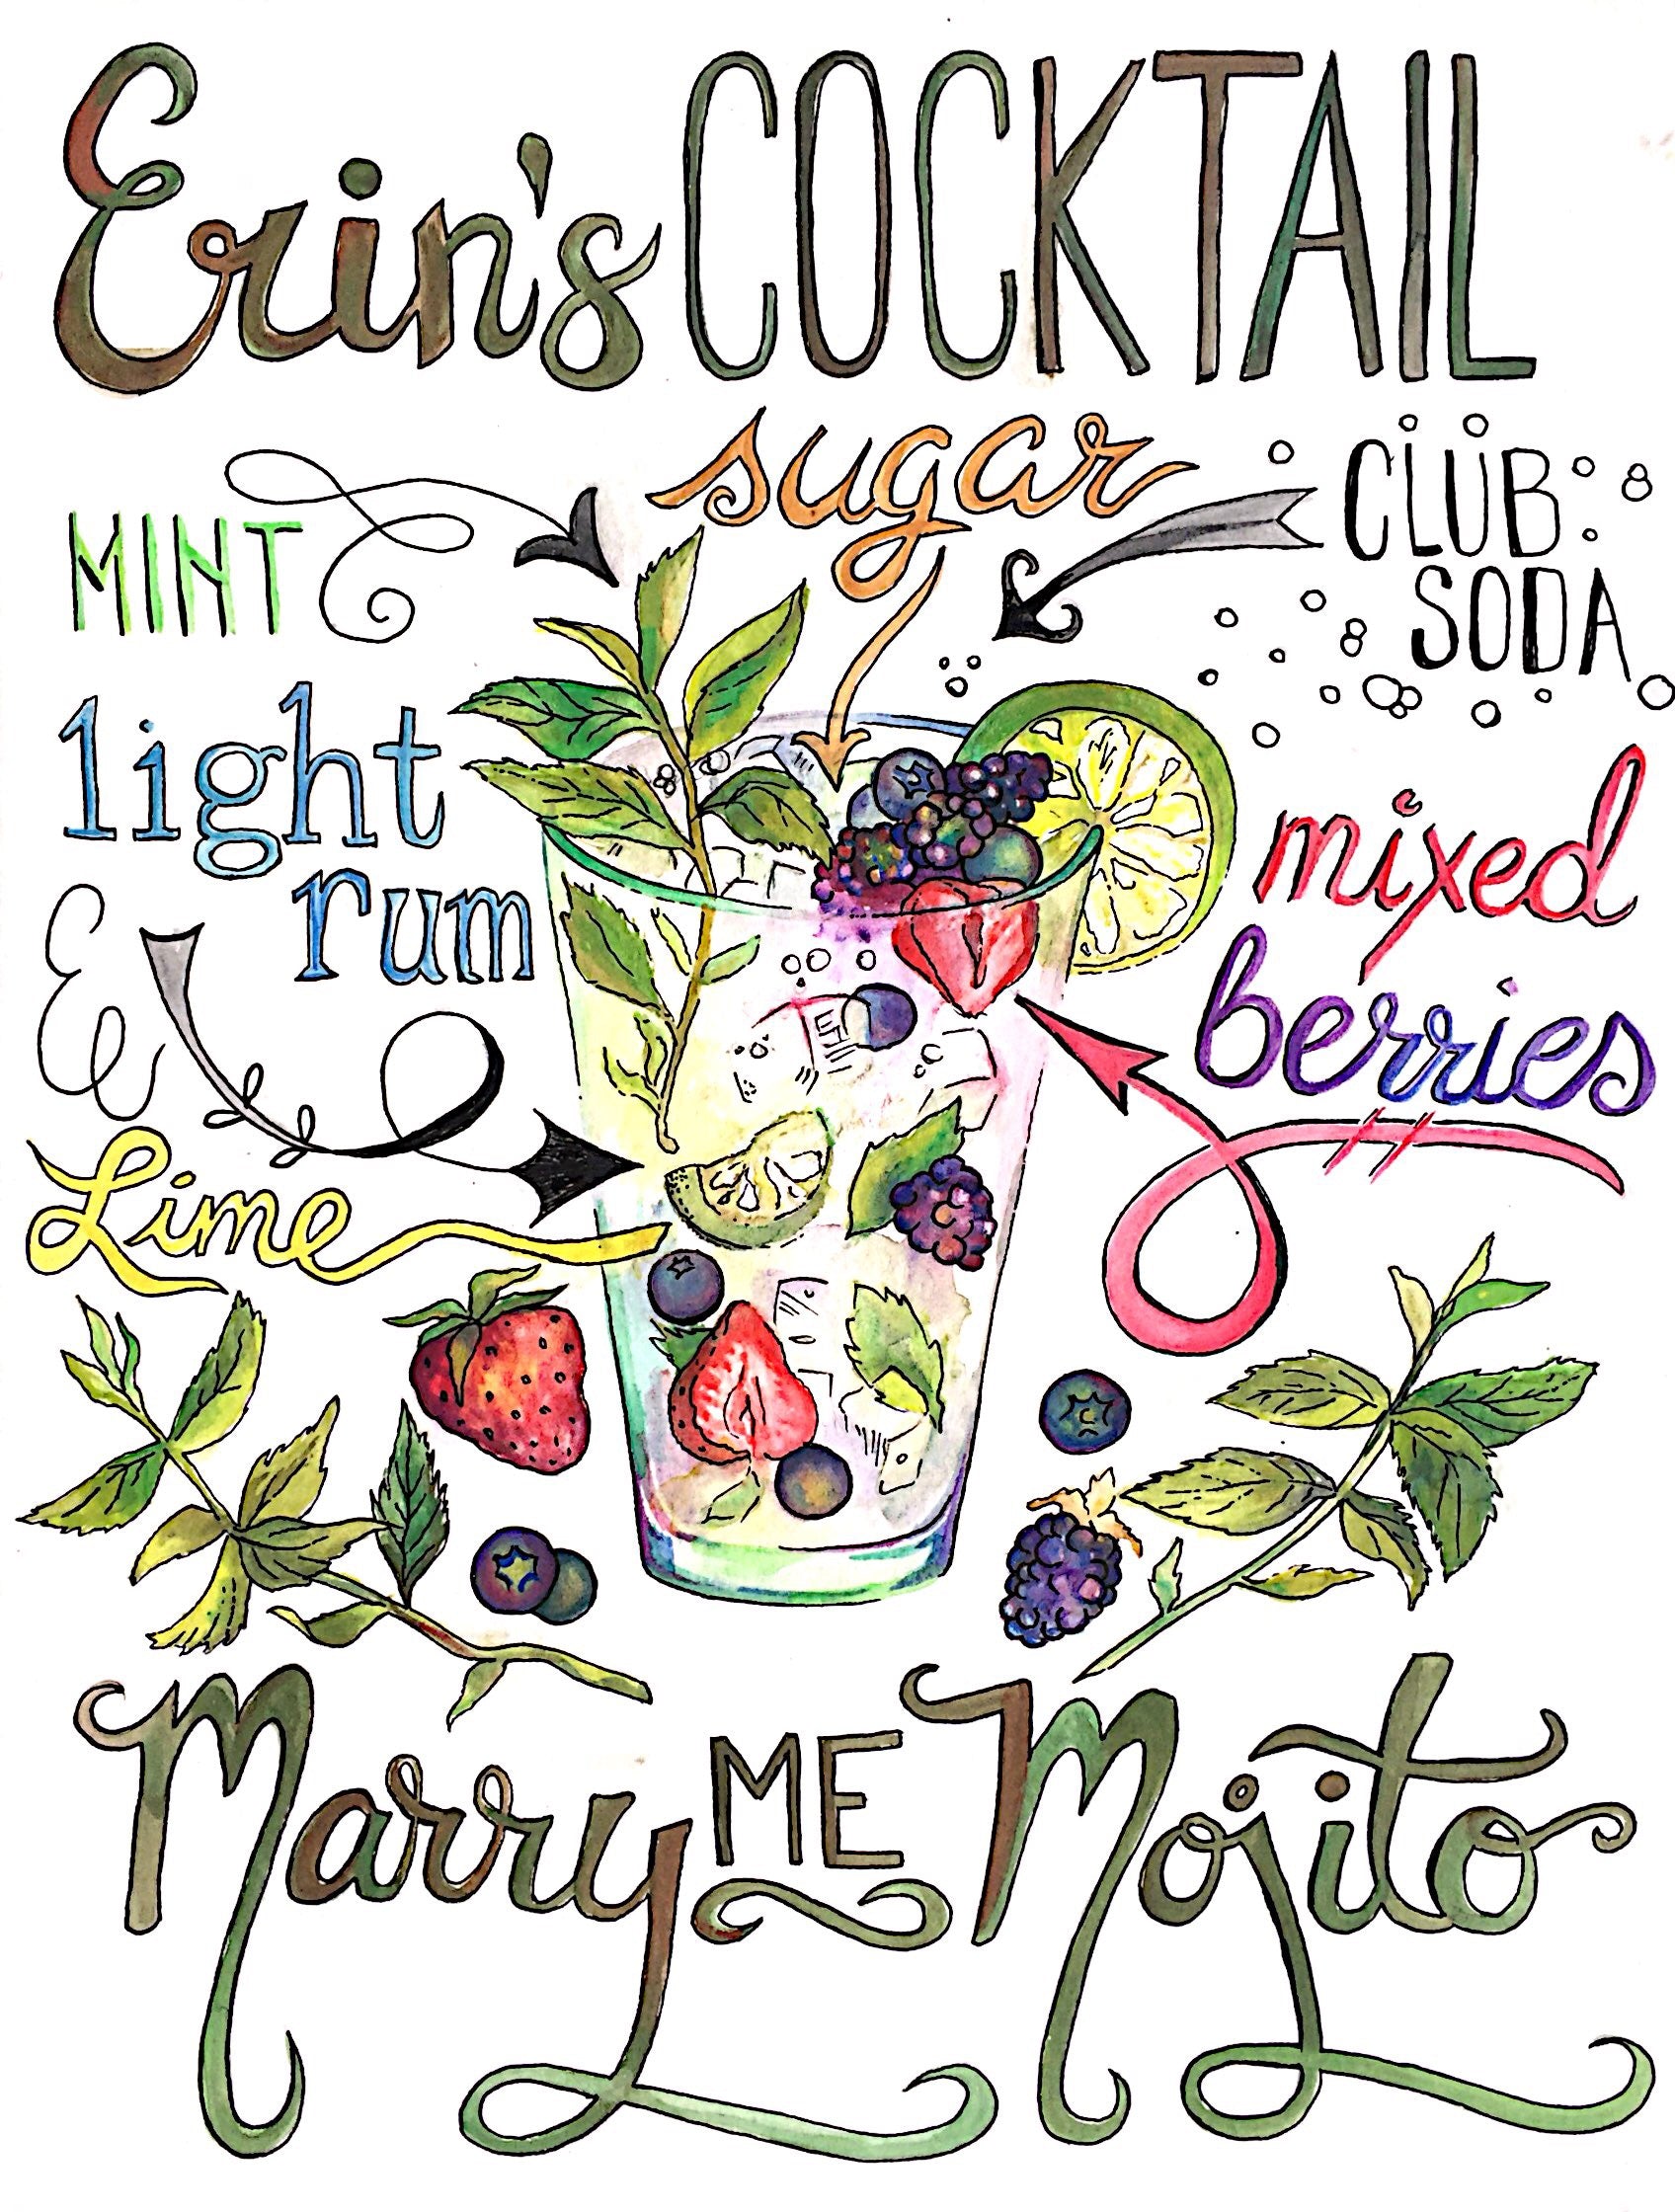 Erin's COCKTAIL
sugar
CLUB
SODA
MINT
light
rum
&
Lime
mixed
berries
Marry ME Mojito